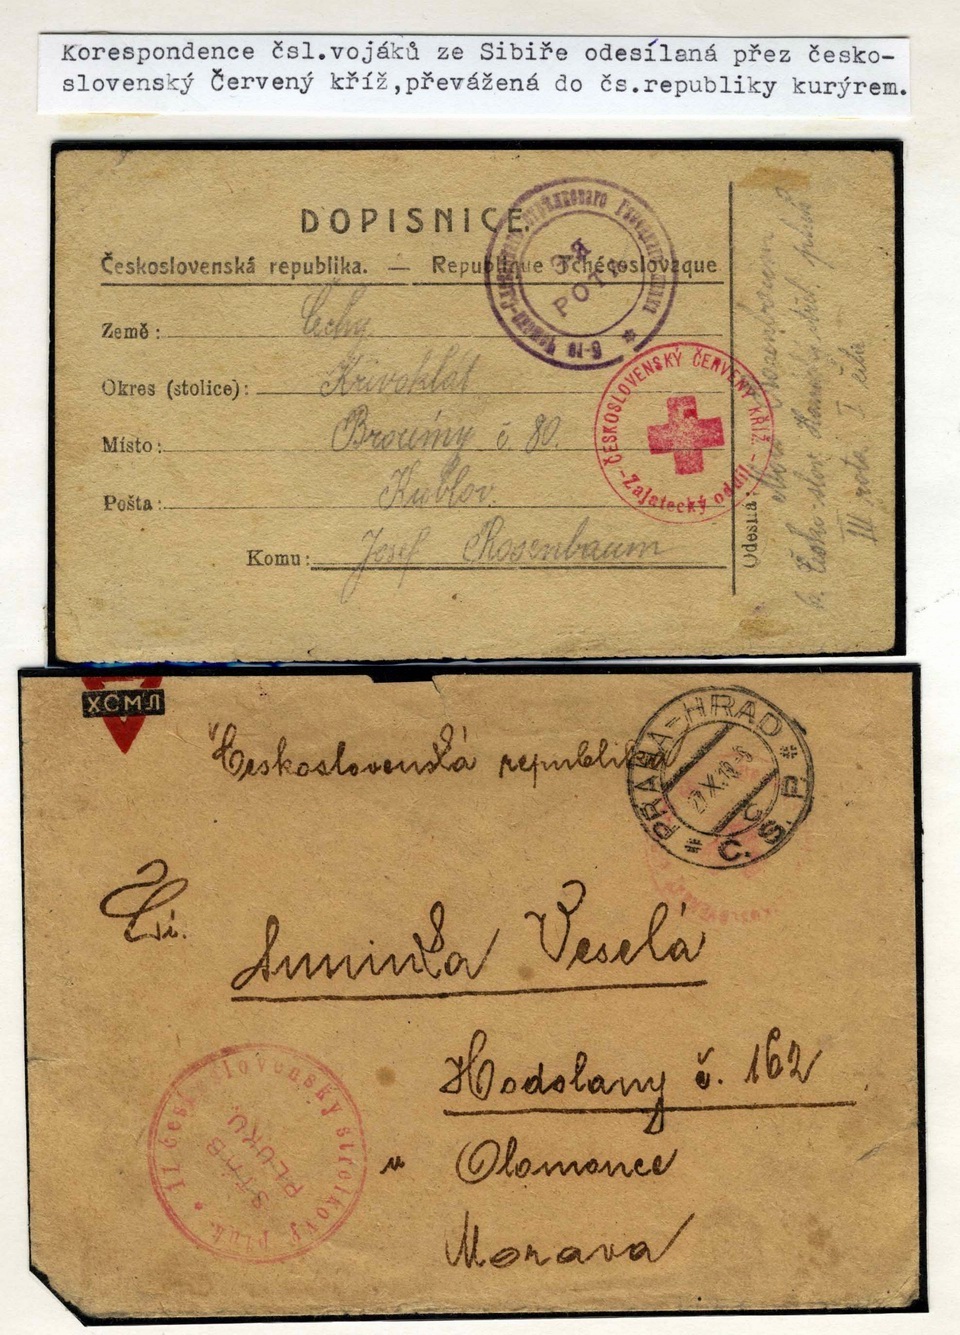 Korespondence čsl.vojáků ze Sibiře odesílaná přez česko-
slovenský Červený kříž,převážená do čs.republiky kurýrem.
DOPISNICE.
Československá republika. — Republique Tchécoslovaque
Země: Čechy
Okres (stolice): Křivoklát
Místo: Broumy č. 80.
Pošta: Kublov.
Komu: Josef Rosenbaum
РОТА
ČESKOSLOVENSKÝ ČERVENÝ KŘÍŽ.
Zajatecký oddíl
Odesílá: Rosenbaum
III rota
ХСМЛ
Československá republika
PRAHA-HRAD
Č. S. P.
Sl.
Aninka Veselá
Hodolany č. 162
u Olomouce
Morava
československý střelkový pluk
PLUKU